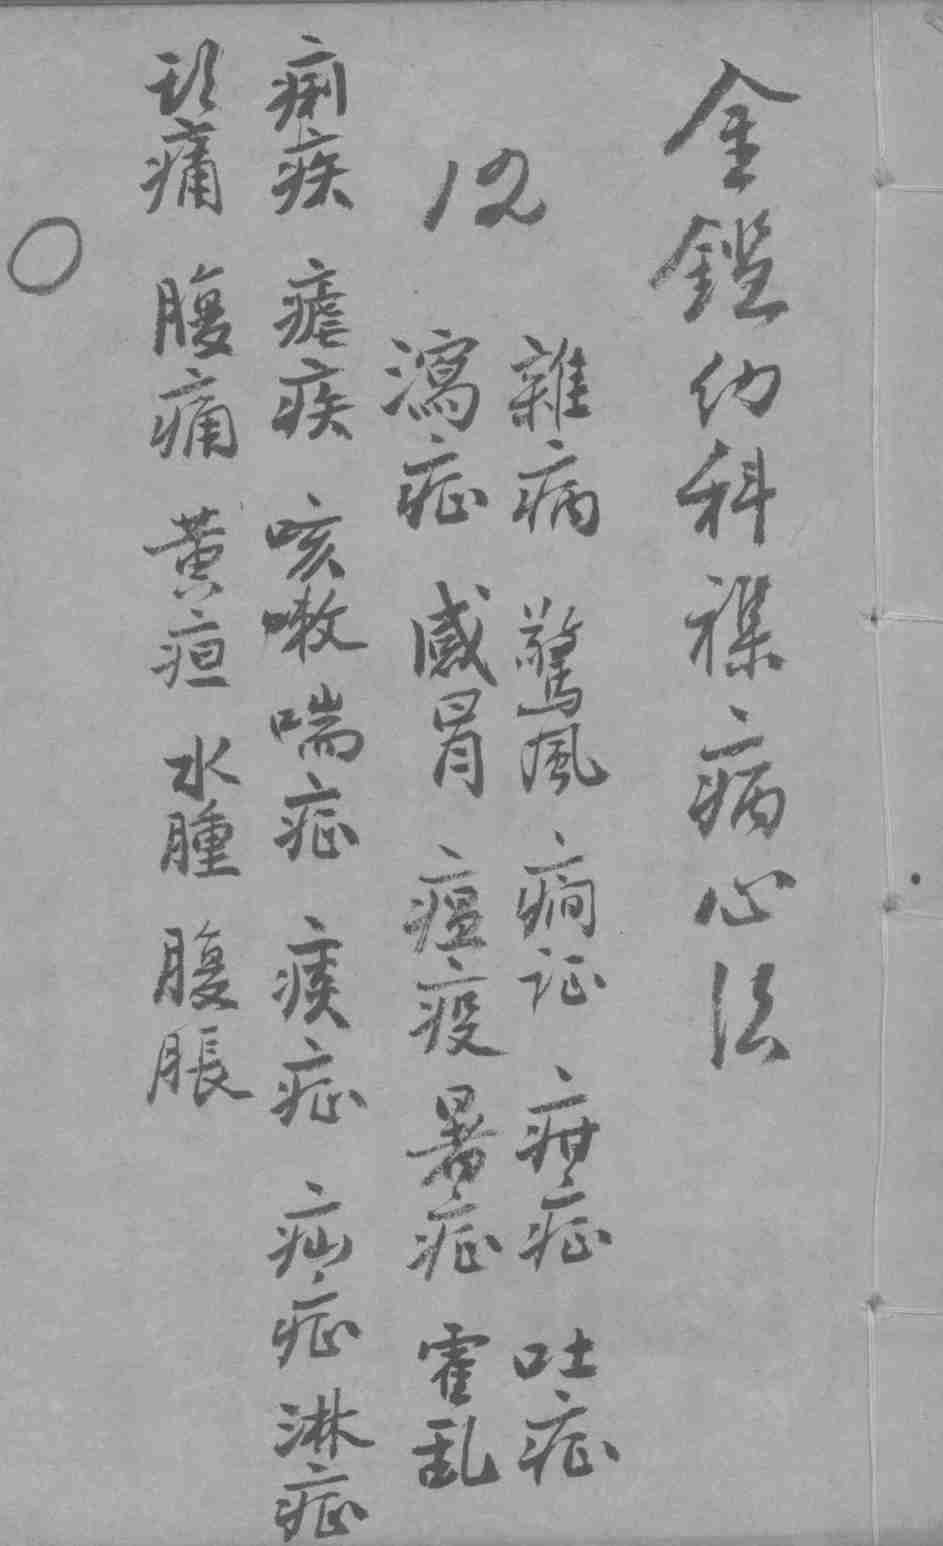 金鑑幼科襍病心法
12
雜病 驚風 癇证 疳症 吐症
瀉症 感冒 瘟疫 暑症 霍乱
痢疾 瘧疾 咳嗽 喘症 痰症 疝症 淋症
頭痛 腹痛 黄疸 水腫 腹脹